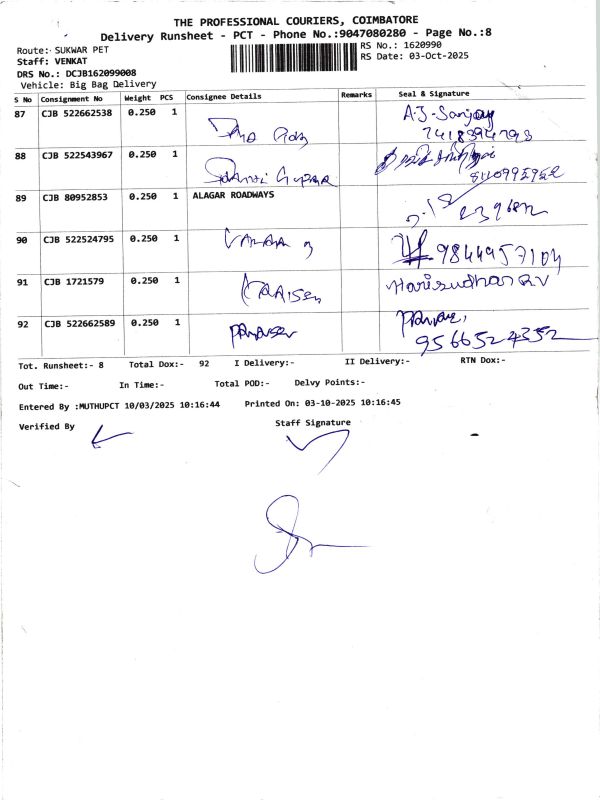 THE PROFESSIONAL COURIERS, COIMBATORE
Delivery Runsheet - PCT - Phone No.:9047080280 - Page No.:8
Route: SUKWAR PET
RS No.: 1620990
Staff: VENKAT
RS Date: 03-Oct-2025
DRS No.: DCJB162099008
Vehicle: Big Bag Delivery
S No Consignment No Weight PCS Consignee Details Remarks Seal & Signature
87 CJB 522662538 0.250 1 A.J-Sanjay
7418394793
88 CJB 522543967 0.250 1
89 CJB 80952853 0.250 1 ALAGAR ROADWAYS
90 CJB 522524795 0.250 1 9844957104
91 CJB 1721579 0.250 1 Harisudhan R.V
92 CJB 522662589 0.250 1
9566524352
Tot. Runsheet:- 8 Total Dox:- 92 I Delivery:- II Delivery:- RTN Dox:-
Out Time:- In Time:- Total POD:- Delvy Points:-
Entered By :MUTHUPCT 10/03/2025 10:16:44 Printed On: 03-10-2025 10:16:45
Verified By Staff Signature